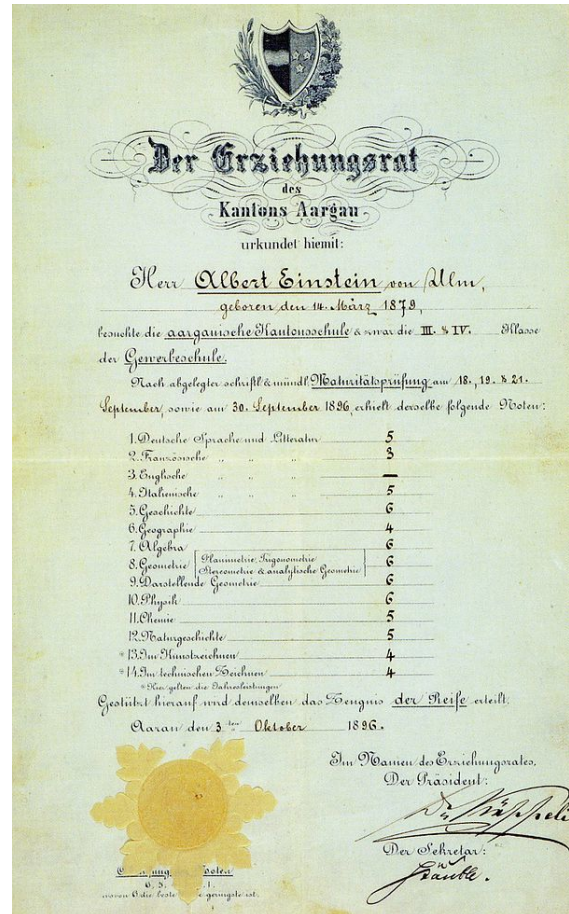 Der Erziehungsrat
des
Kantons Aargau
urkundet hiemit:
Herr Albert Einstein von Ulm,
geboren den 14. März 1879,
besuchte die aargauische Kantonsschule & zwar die III. & IV. Klasse
der Gewerbeschule.
Nach abgelegter schriftl. & mündl. Maturitätsprüfung am 18., 19. & 21.
September, sowie am 30. September 1896, erhielt derselbe folgende Noten:
1. Deutsche Sprache und Litteratur 5
2. Französische " " " 3
3. Englische " " " —
4. Italienische " " " 5
5. Geschichte 6
6. Geographie 4
7. Algebra 6
8. Geometrie Planimetrie, Trigonometrie
Stereometrie & analytische Geometrie 6
9. Darstellende Geometrie 6
10. Physik 6
11. Chemie 5
12. Naturgeschichte 5
* 13. Im Kunstzeichnen 4
* 14. Im technischen Zeichnen 4
* Hier gelten die Jahresleistungen
Gestützt hierauf wird demselben das Zeugnis der Reife erteilt.
Aarau den 3ten Oktober 1896.
Im Namen des Erziehungsrates,
Der Präsident:
Der Sekretär:
Stäuble.
6, 5, 1.
wovon 6 die beste geringste ist.